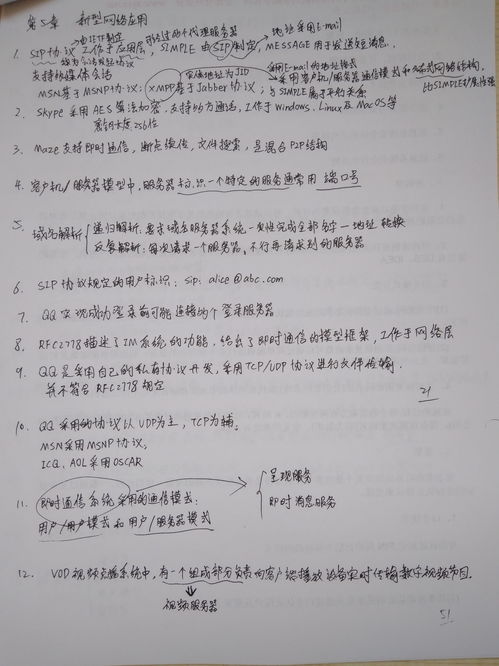 第5章 新型网络应用
由IETF制定 可经过的个代理服务器 地址采用E-mail
1. SIP协议工作于应用层, SIMPLE由SIP制定, MESSAGE用于发送短消息.
称为会话发起协议
支持多媒体会话 实体地址为JID 采用E-mail的地址格式
MSN基于MSNP协议; XMPP基于Jabber协议; 采用客户机/服务器通信模式和分布式网络结构,
与SIMPLE属于平行关系 比SIMPLE扩展性强
2. Skype采用AES算法加密, 支持多方通话, 工作于Windows、Linux及MacOS等
密钥长度256位
3. Maze支持即时通信, 断点续传, 文件搜索, 是混合P2P结构
4. 客户机/服务器模型中, 服务器标识一个特定的服务通常用 端口号
5. 域名解析 递归解析: 要求域名服务器系统一次性完成全部名字—地址 转换
反复解析: 每次请求一个服务器, 不行再请求别的服务器
6. SIP协议规定的用户标识: sip: alice@abc.com
7. QQ实现成功登录前可能连接多个登录服务器
8. RFC2778描述了IM系统的功能, 给出了即时通信的模型框架, 工作于网络层
9. QQ是采用自己的私有协议开发, 采用TCP/UDP协议进行文件传输.
并不符合RFC2778规定
21
10. QQ采用的协议以UDP为主, TCP为辅,
MSN采用MSNP协议,
ICQ、AOL采用OSCAR
呈现服务
11. 即时通信系统采用的通信模式: 即时消息服务
用户/用户模式和用户/服务器模式
12. VOD视频点播系统中, 有一个组成部分负责向客户端播放设备实时传输数字视频节目.
视频服务器
51